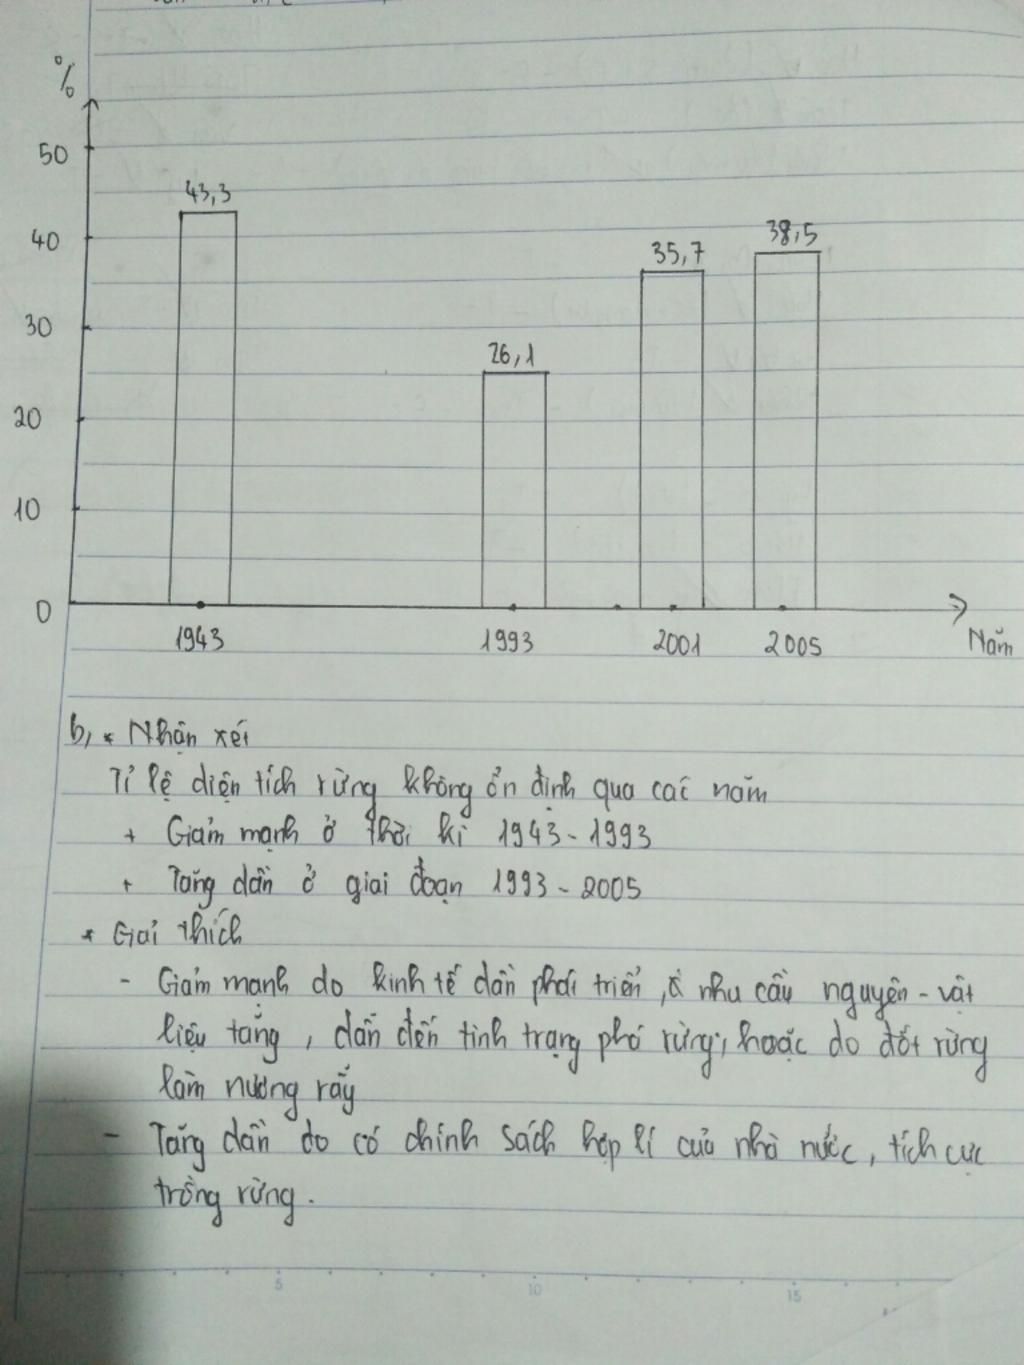 %
50
43,3
38,5
40
35,7
30
26,1
20
10
0
1943
1993
2001
2005
Năm
b, * Nhận xét
Tỉ lệ diện tích rừng không ổn định qua các năm
+ Giảm mạnh ở thời kì 1943 - 1993
+ Tăng dần ở giai đoạn 1993 - 2005
* Giải thích
- Giảm mạnh do kinh tế dần phát triển, nhu cầu nguyên - vật
liệu tăng, dẫn đến tình trạng phá rừng, hoặc do đốt rừng
làm nương rẫy
- Tăng dần do có chính sách hợp lí của nhà nước, tích cực
trồng rừng.
5
10
15